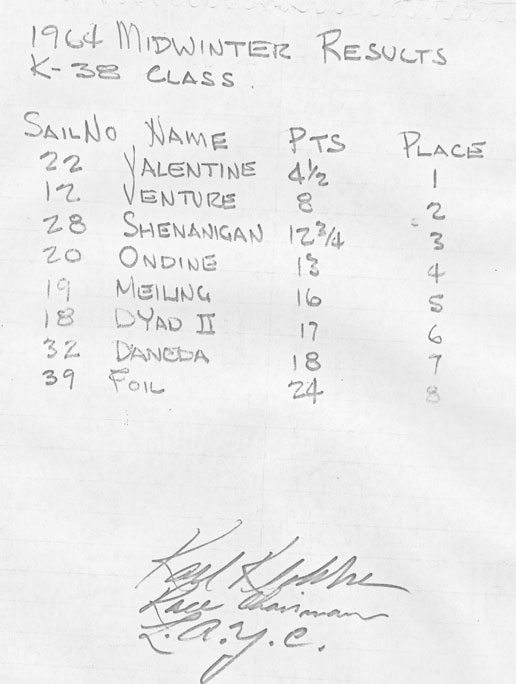 1964 MIDWINTER RESULTS
K-38 CLASS.
SAIL NO NAME PTS PLACE
22 VALENTINE 4½ 1
12 VENTURE 8 2
28 SHENANIGAN 12¾ 3
20 ONDINE 13 4
19 MEILING 16 5
18 DYAD II 17 6
32 DANEDA 18 7
39 FOIL 24 8
Race Chairman
L.A.Y.C.